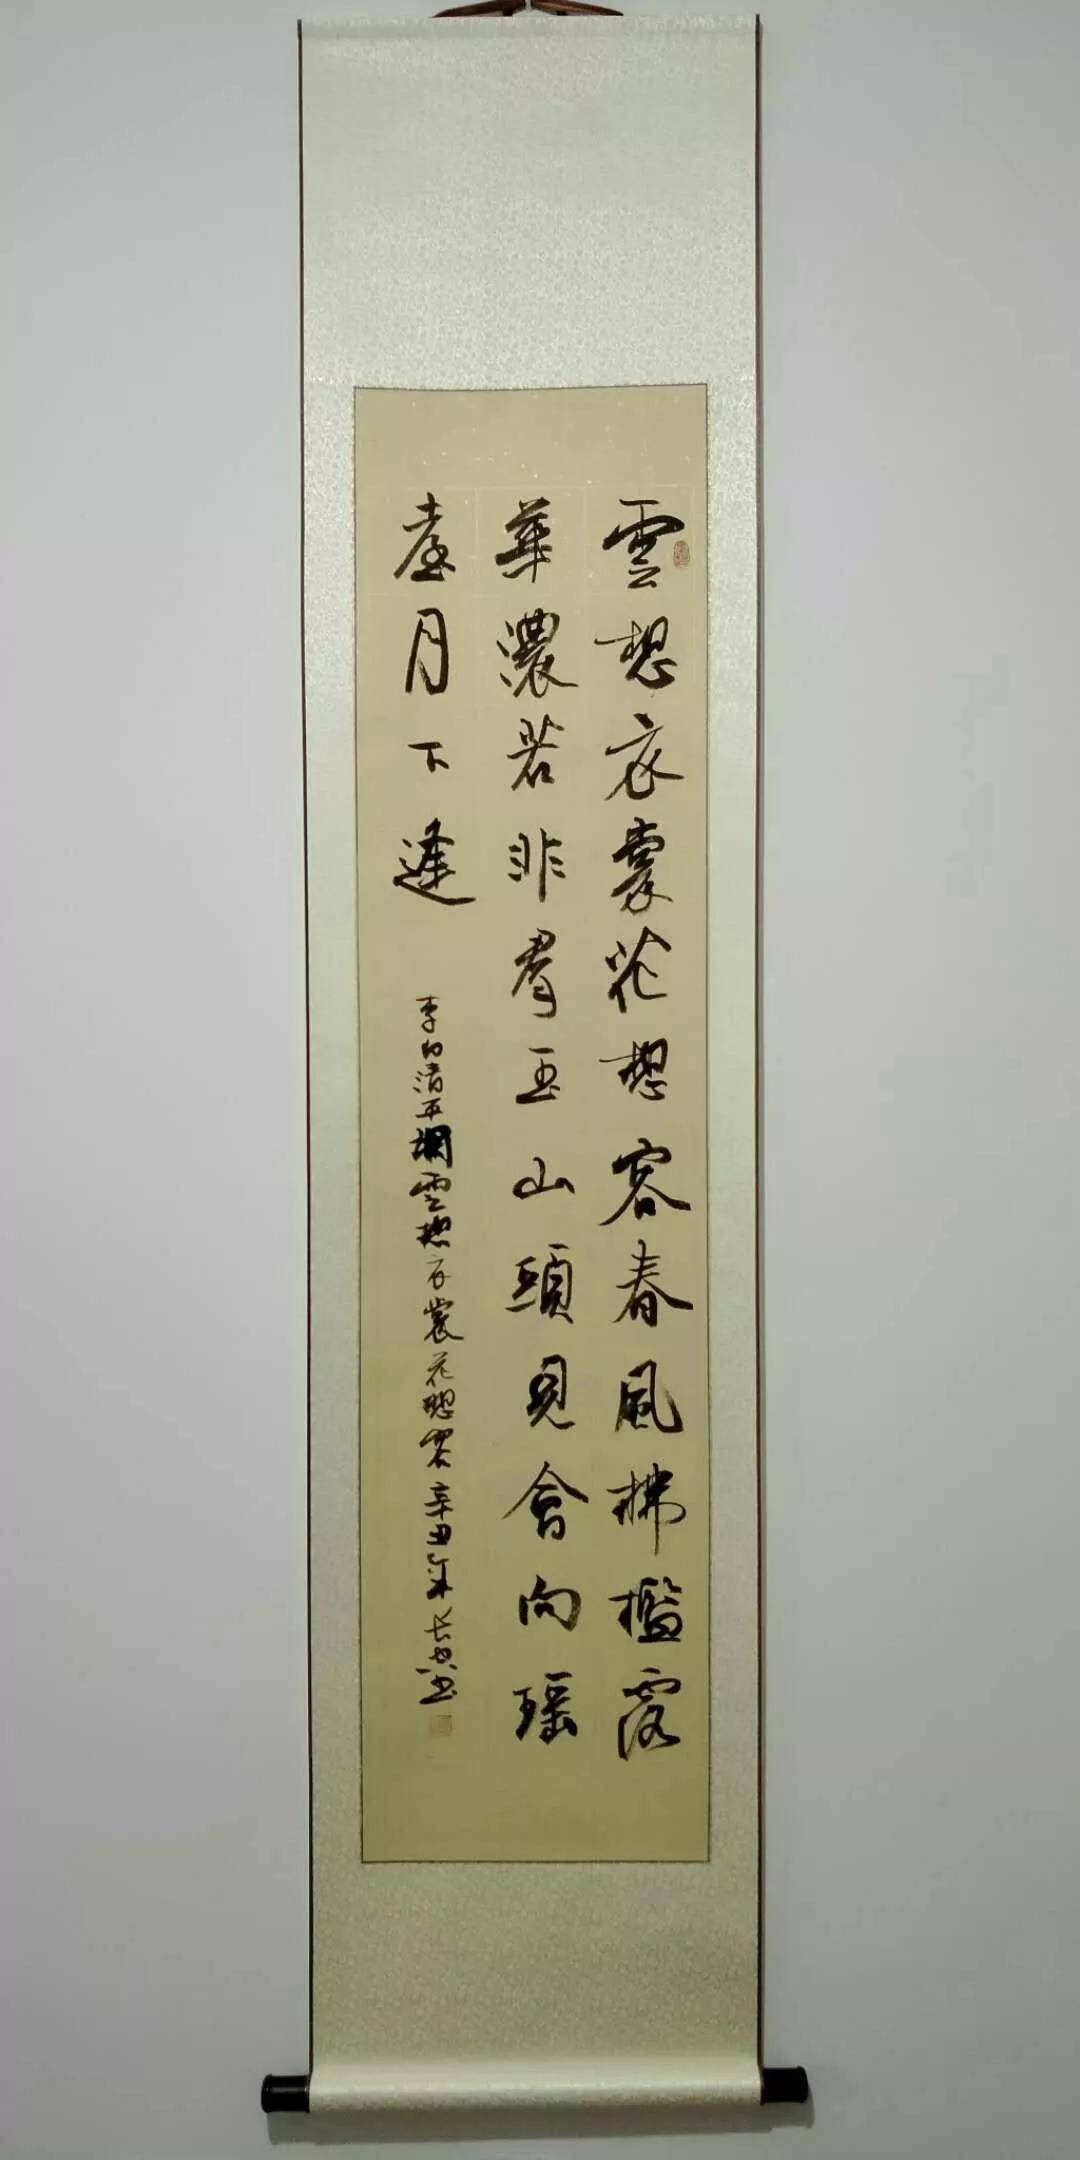 雲想衣裳花想容春風拂檻露
華濃若非羣玉山頭見會向瑶
臺月下逢
李白清平調雲想衣裳花想容辛丑年长书